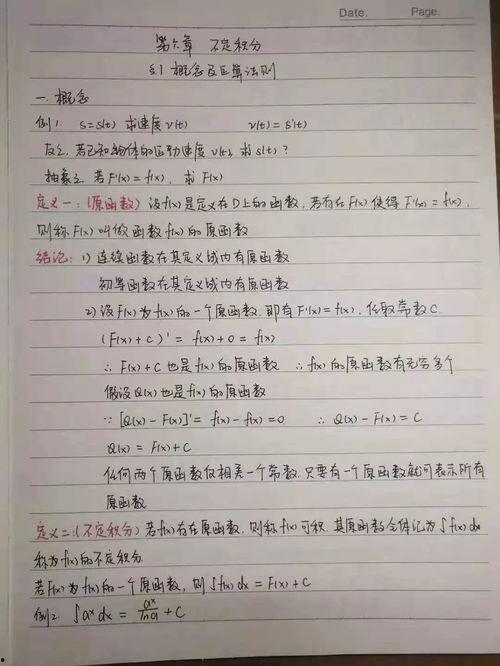 Date.    Page.
第六章 不定积分
§.1 概念及运算法则
一. 概念
例1. S=S(t) 求速度 v(t)    v(t)=S'(t)
反之, 若已知物体的运动速度 v(t), 求 S(t)?
抽象之, 若 F'(x)=f(x), 求 F(x)
定义一: (原函数) 设f(x)是定义在D上的函数, 若存在F(x)使得 F'(x)=f(x),
则称F(x)叫做函数f(x)的原函数
结论: 1) 连续函数在其定义域内有原函数
初等函数在其定义域内有原函数
2) 设F(x)为f(x)的一个原函数. 即有F'(x)=f(x), 任取常数C
(F(x)+C)' = f(x)+0 = f(x)
∴ F(x)+C 也是f(x)的原函数 ∴ f(x)的原函数有无穷多个
假设Q(x)也是f(x)的原函数
∵ [Q(x)-F(x)]' = f(x)-f(x)=0 ∴ Q(x)-F(x)=C
Q(x)=F(x)+C
任何两个原函数仅相差一个常数. 只要有一个原函数就可表示所有
原函数
定义二: (不定积分) 若f(x)存在原函数, 则称f(x)可积. 其原函数全体记为∫f(x)dx
称为f(x)的不定积分.
若F(x)为f(x)的一个原函数, 则 ∫f(x)dx = F(x)+C
例2. ∫a^x dx = a^x/ln a + C